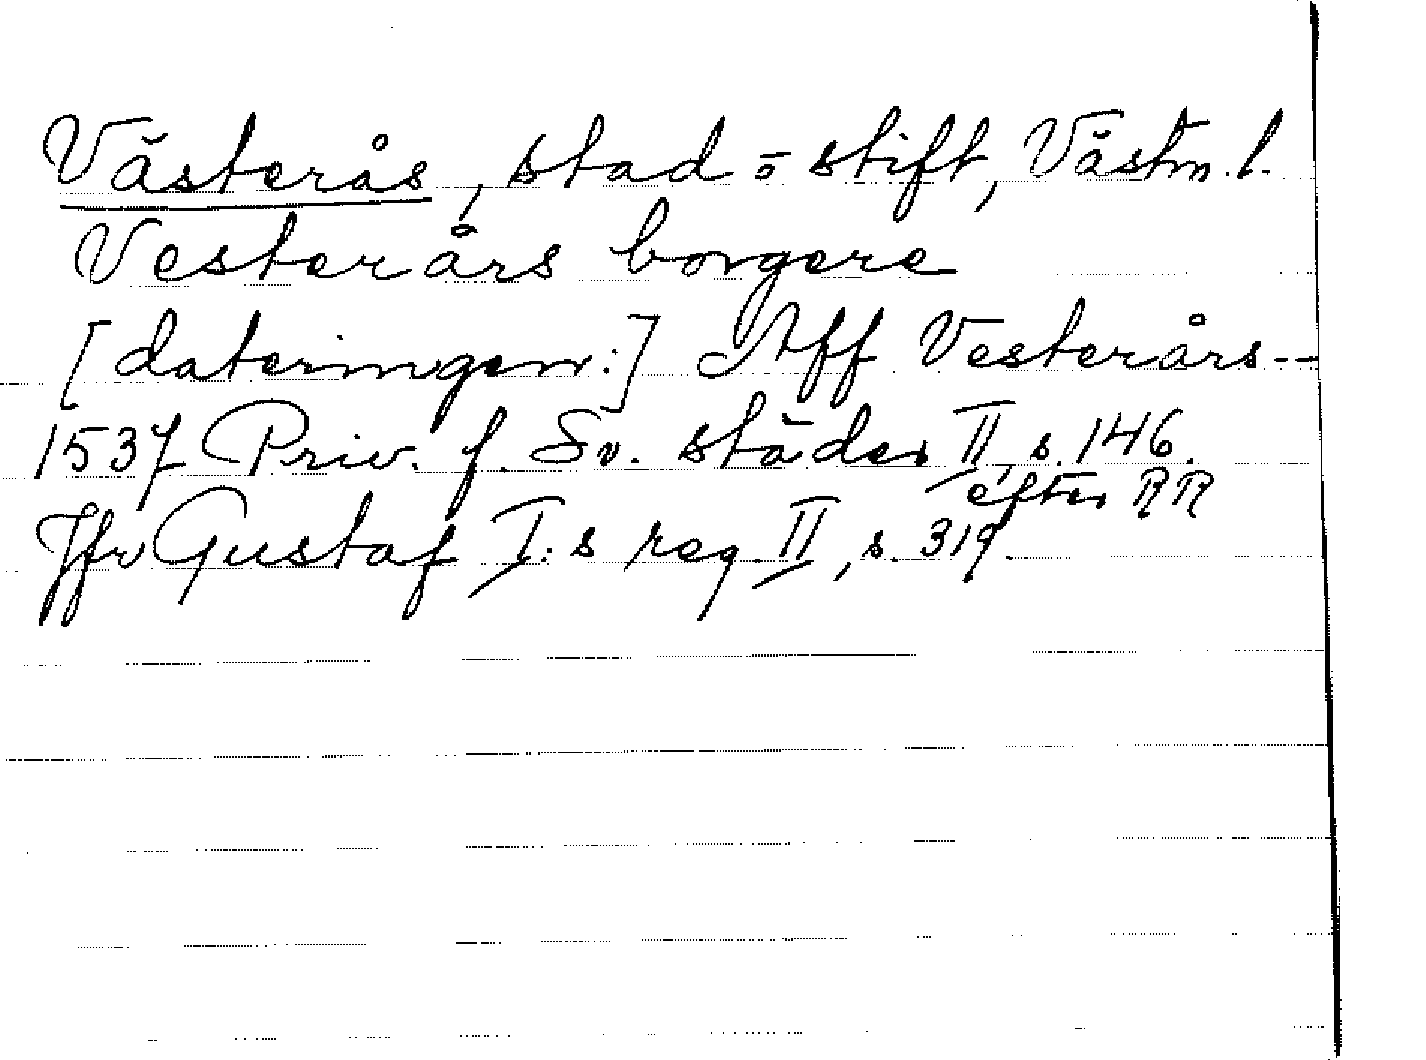 Västerås, stad o stift, Västm. l.
Vesterårs borgere
[dateringen:] Aff Vesterårs--
1537 Priv. f. Sv. städer II, s. 146.
efter RR
Jfr Gustaf I:s reg. II, s. 319.